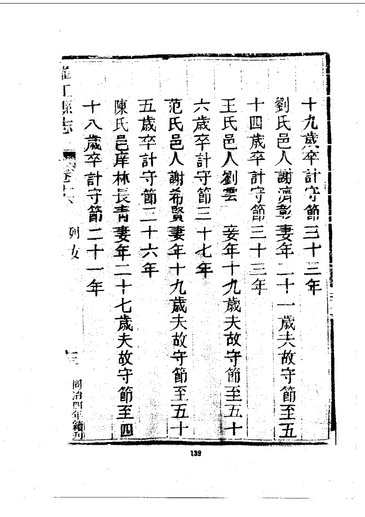 十九歲卒計守節三十三年
劉氏邑人謝濟彰妻年二十一歲夫故守節至五
十四歲卒計守節三十三年
王氏邑人劉雲 妻年十九歲夫故守節至五十
六歲卒計守節三十七年
范氏邑人謝希賢妻年十九歲夫故守節至五十
五歲卒計守節二十六年
陳氏邑庠林長青妻年二十七歲夫故守節至四
十八歲卒計守節二十一年
江縣志 卷十六 列女
同治四年續刊
139